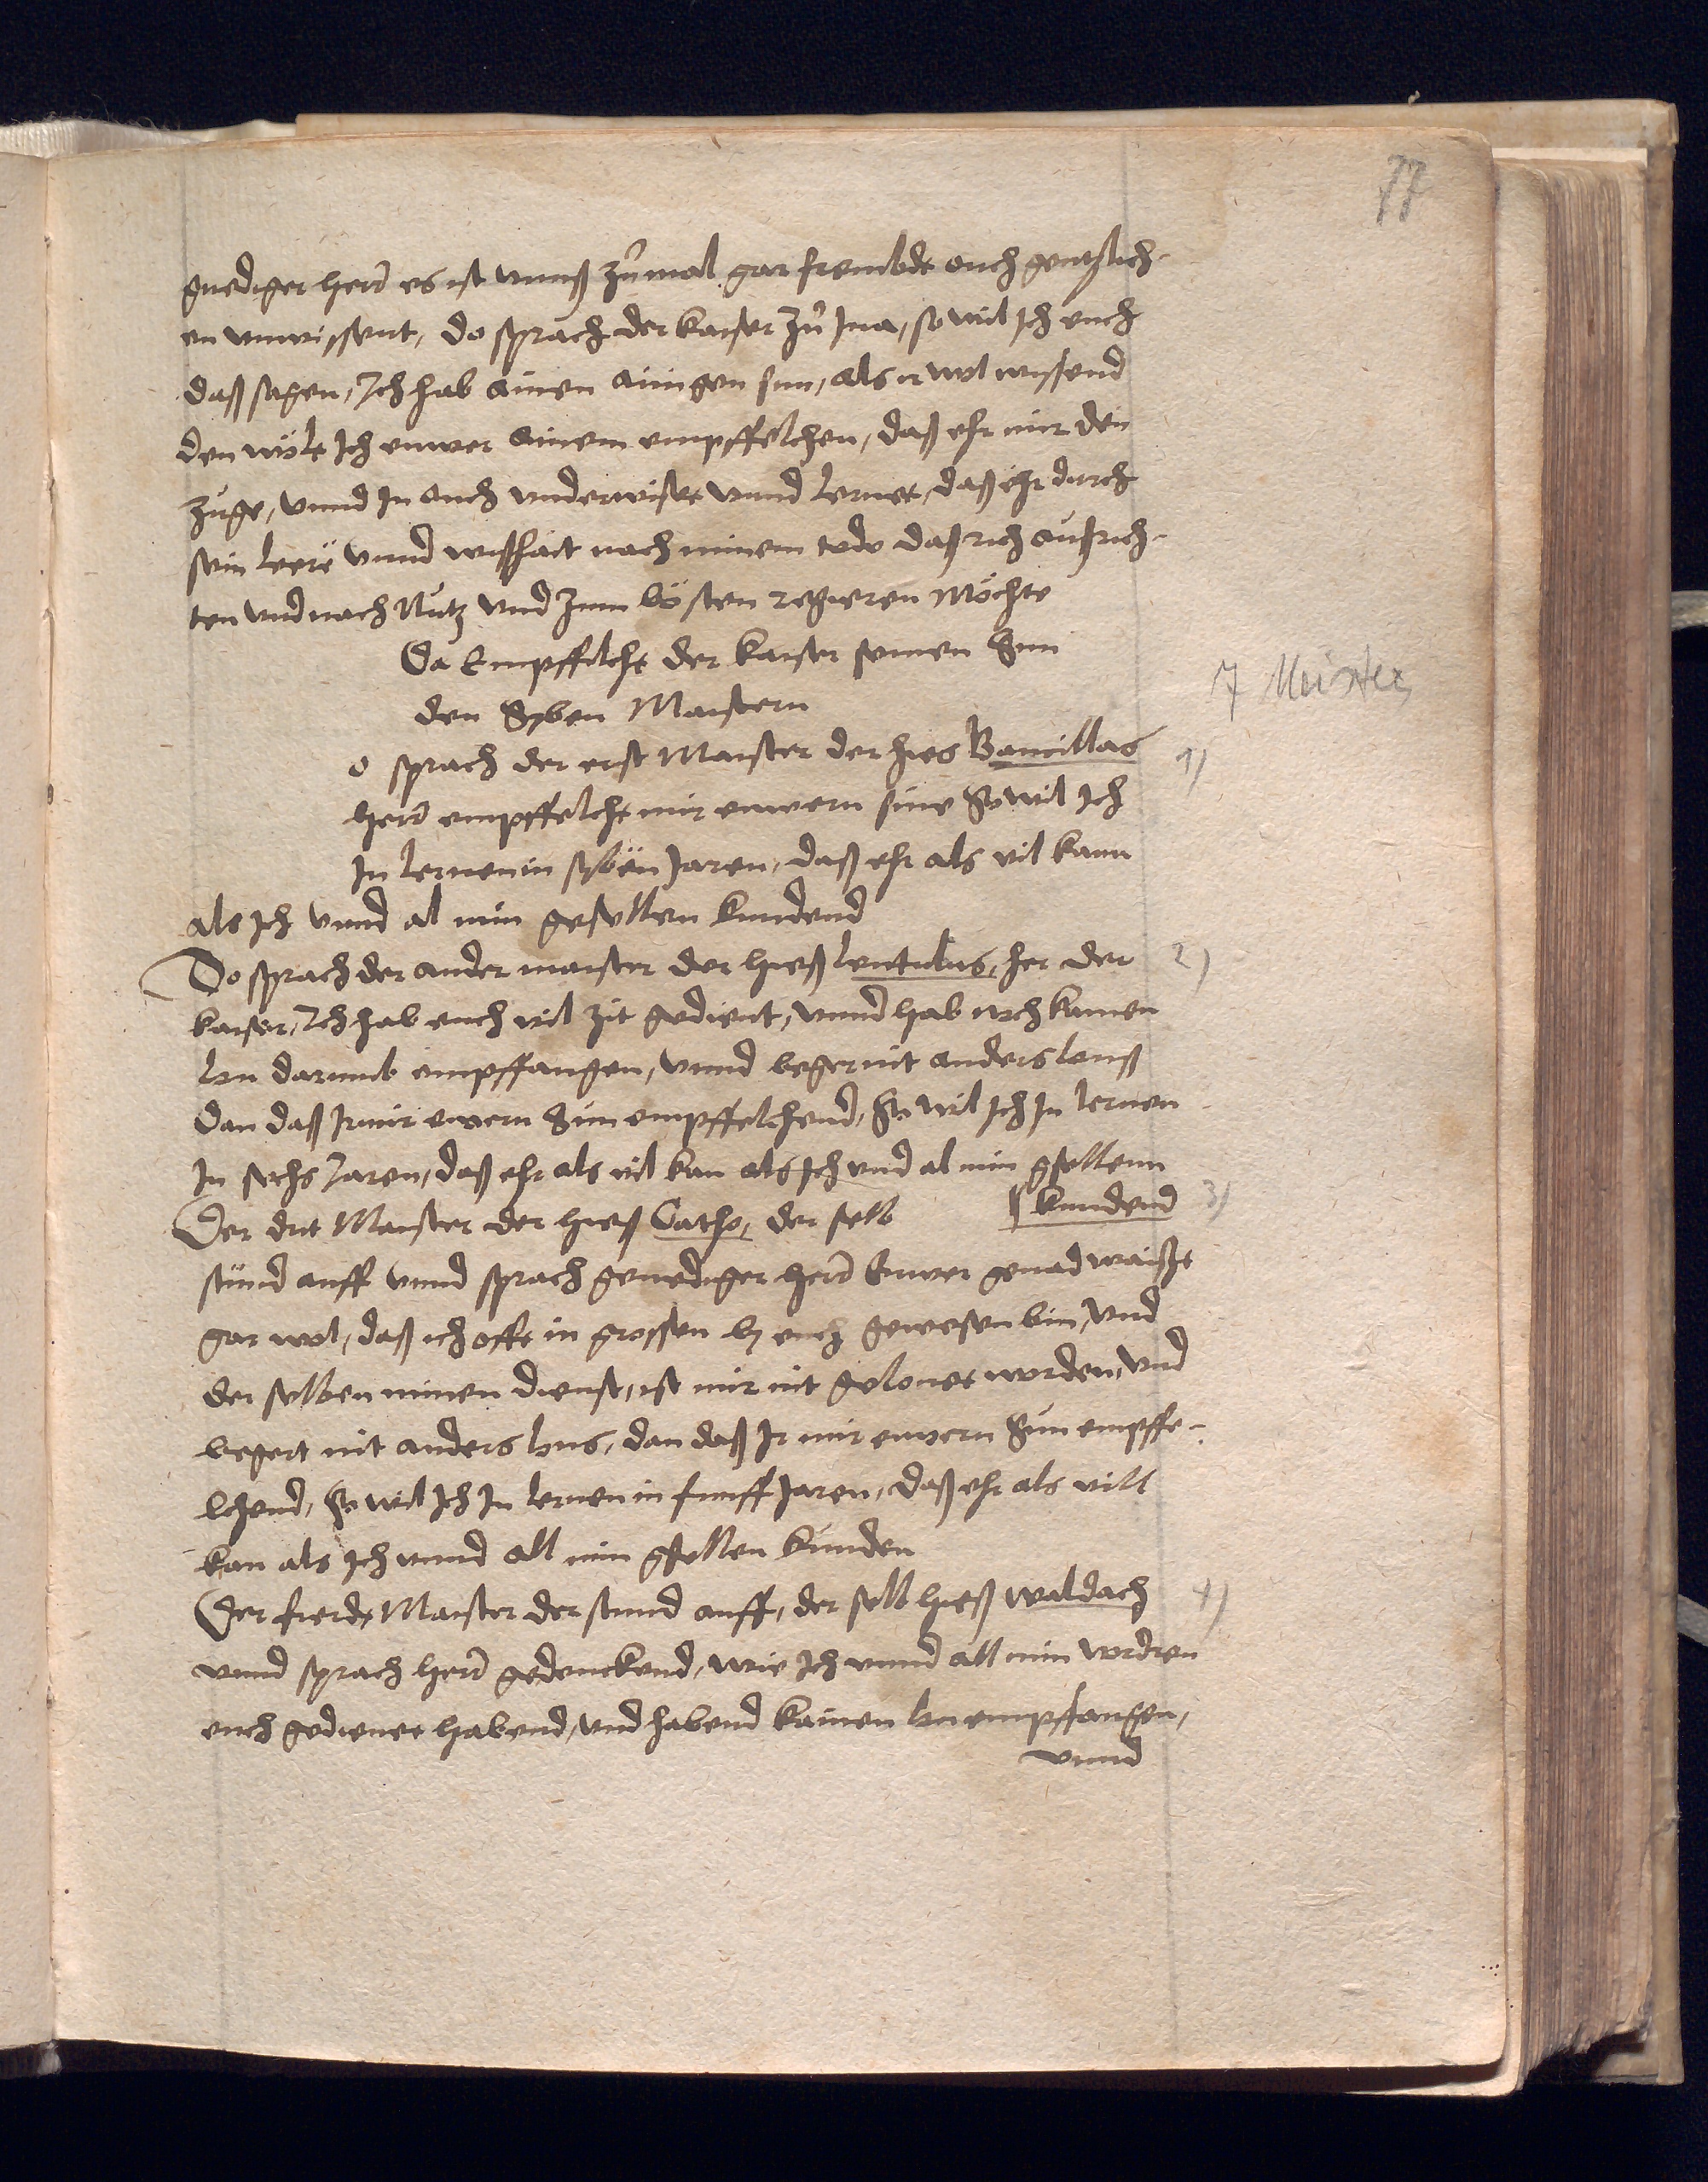 77
gnediger herr es ist vnnß zu͂mal gar frembde ouch gentzlich-
en vnwissent, do sprach der kaiser zu͂ Jna, so wil Jch euch
daß sagen, Jch hab ainen ainigen sun, als ir wol wissend
den wölt Jch euwer ainem empffelchen, daß ehr mir den
zuge, vnnd Jn ouch vnderwiset vnnd lernet, daß ehr durch
sein leere vnnd wißhait nach minem tode daß rich außrich-
ten vnd nach Nutz vnd zum bösten regieren Möchte
Da Empffilcht der kaiser seinen Sun
den Syben Maistern
7 Meister
o sprach der erst Maister der hies Bancillas
1)
herr empffelcht mir euwern sune So wil Jch
Jn lernen in syben Jaren, daß ehr als vil kann
als Jch vnnd al min gesellen kundend
Do sprach der ander maister der hieß lentulus, her der
2)
kaiser, Jch hab euch vil zit gedient, vnnd hab noch kainen
lon darumb empffangen, vnnd beger nit anders lonß
dan daß Jr mir ewern Sun empffelchend, So wil Jch Jn lernen
Jn sechs Jaren, daß ehr als vil kan als Jch vnd al min gsellenn
kundend
3)
Der drit Maister der hieß Catho, der selb
stund auff vnnd sprach genediger herr Euwer genad waißt
gar wol, daß ich offt in grossen by euch gewesen bin, vnd
der selben minen dienst, ist mir nit gelonet worden, vnd
begert nit anders lons, dan daß Jr mir euwern Sun empffe-
lchend, So wil Jch Jn lernen in funff Jaren, daß ehr als vill
kan als Jch vnnd all min gsellen kunden
Der fierde Maister der stund auff, der selb hieß waldach
4)
vnnd sprach herr gedenckend, wie Jch vnnd all min vordren
euch gedienet habend, vnd habend kainen lon empfangen,
vnnd